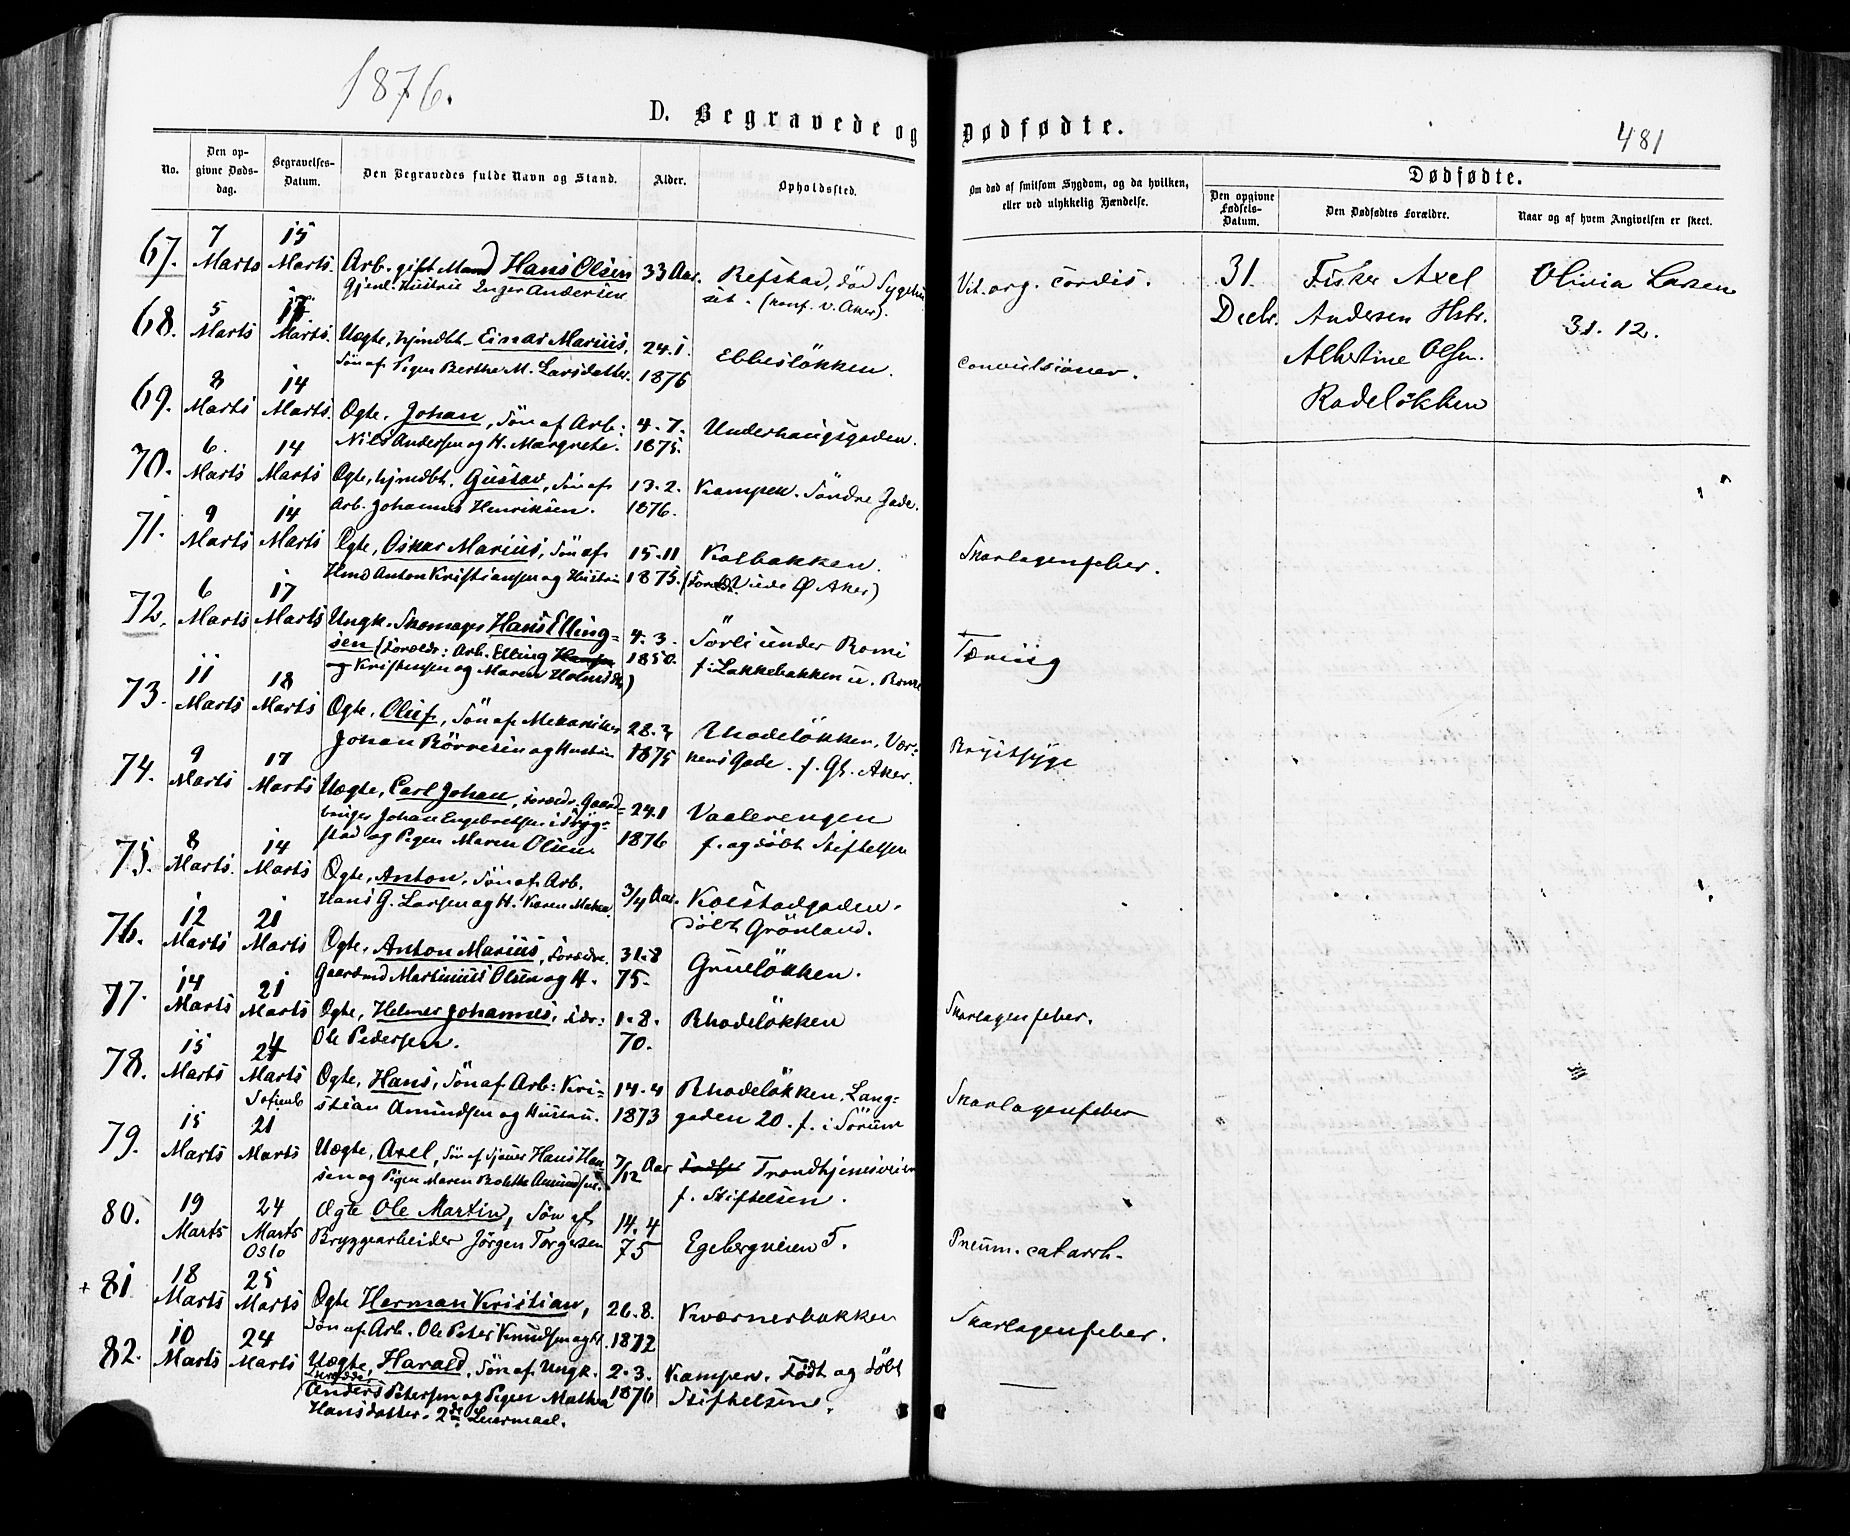 1876.
D. Begravede og Dødfødte.
481
No.
Den opgivne Dødsdag.
Begravelses-Datum.
Den Begravedes fulde Navn og Stand.
Alder.
Opholdssted.
Om død af smitsom Sygdom, og da hvilken, eller ved ulykkelig Hændelse.
Dødfødte.
Den opgivne Fødsels-Datum.
Den Dødfødtes Forældre.
Naar og af hvem Angivelsen er skeet.
67. 7 Marts 15 Marts. Arb. gift Mand Hans Olsen 33 Aar. Refstad, død Sygehu-
Gjenl. Hustru Inger Andersen set. (konf. v. Aker). Vit. org. cordis.
68. 5 Marts Marts. Uægte, hjmdbt. Einar Marius, 24.1. Ebbesløkken. Convulsioner.
Søn af Pigen Berthe M. Larsdatter. 1876
69. 8 Marts 14 Marts. Ægte, Johan, Søn af Arb: 4.7. Underhaugsgaden.
Nils Andersen og H. Margrethe. 1875.
70. 6. Marts 14 Marts Ægte, hjmdbt. Gustav, Søn af 13.2. Kampen. Söndre Gade.
Arb. Johannes Henriksen. 1876.
71. 9 Marts 14 Marts Ægte, Oskar Marius, Søn af 15.11 Kolbakken. Skarlagensfeber.
Anton Kristiansen og Hustru 1875. Ø Aker)
72. 6 Marts 17 Marts Ungk. Skomager Hans Elling= 4.3. Sörli under Bomi Tæring
sen (Foræld: Arb. Elling Hansen 1850. f. i Lakkebakken u.
og Kristensen og Maren
73. 11 Marts 18 Marts Ægte, Oluf, Søn af Mekaniker 28.3 Rhodeløkken, Vær- Brystsyge
Johan Börresen og Hustru 1875 kens Gade. f. Gl. Aker.
74. 9 Marts 17 Marts Uægte, Carl Johan, Forældr. Gaard= 24.1 Vaalerengen
bruger Johan Engebretsen i
stad og Pigen Maren Olsen. 1876 f. og døbt Stiftelsen
75. 8 Marts. 14 Marts Ægte, Anton, Søn af Arb. 3/4 Aar. Kolstadgaden.
Hans G. Larsen og H. Karen døbt Grönland.
76. 12 Marts 21 Marts Ægte, Anton Marius, Forældre. 31.8 Grueløkken.
Gaardmd Martinius Olsen og H. 75.
77. 14 Marts 21 Marts Ægte, Helmer Johannes, For: 1.8. Rhodeløkken Skarlagensfeber.
Ole Pedersen. 70.
78. 15 Marts 24 Marts Ægte, Hans, Søn af Arb: Kri- 14.4 Rhodeløkken, Lang= Skarlagensfeber
Sofienb stian Amundsen og Hustru. 1873 gaden 20. f. i Sörum
79. 15 Marts 21 Marts Uægte, Axel, Søn af Tjener Hans Han= 7/12 Aar Trondhjemsveien
sen og Pigen Maren Bolette Amundsen. f. Stiftelsen.
80. 19 Marts 24 Marts Ægte Ole Martin, Søn af 14.4 Egebergveien 5. Pneum. catarrh.
Oslo Bryggearbeider Jörgen Torgersen 75
+ 81 18 Marts 25 Marts Ægte Herman Kristian, 26.8. Kværnerbakken Skarlagensfeber.
Søn af Arb. Ole Peter Knudsen og H. 1872
82. 10 Marts 24 Marts Uægte, Harald, Søn af Ungk. 2.3. Kampen. Født og døbt —
Anders Petersen og Pigen Mathea 1876 Stiftelsen.
Hansdatter. 2de Leiermaal.
31. Decbr. Fisker Axel Olivia Larsen
Andersen Hstr. 31. 12.
Albertine Olsen.
Rodeløkken